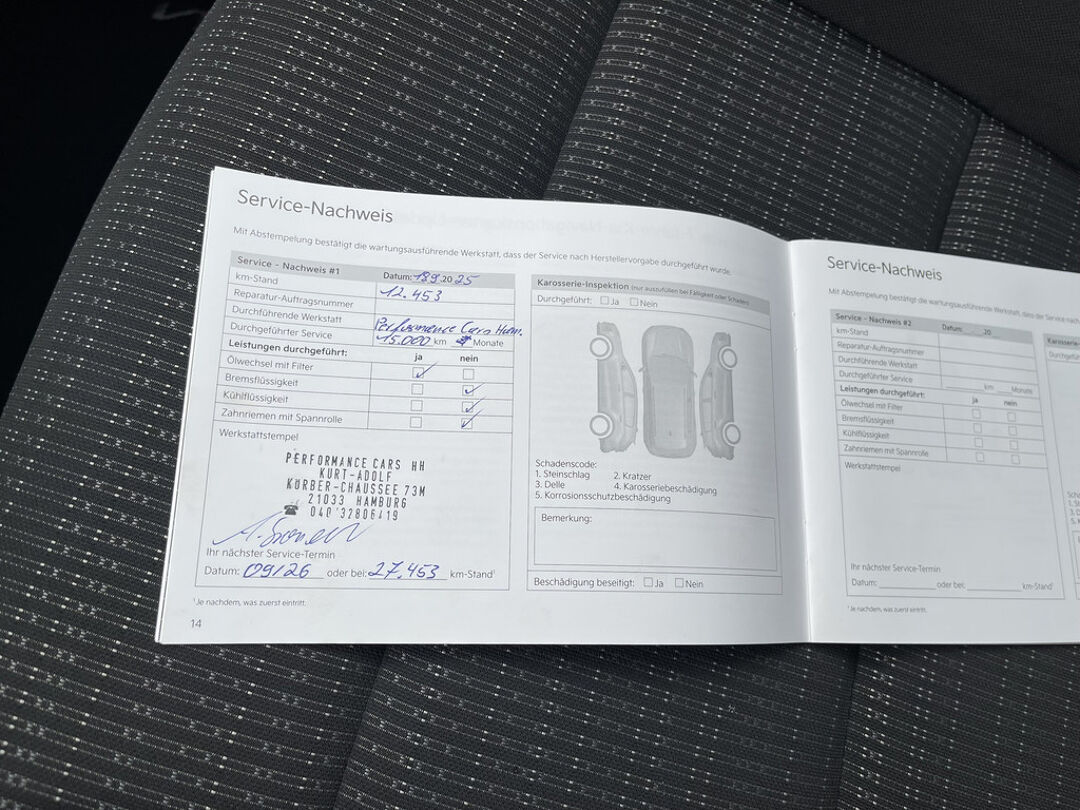 Service-Nachweis
Mit Abstempelung bestätigt die wartungsausführende Werkstatt, dass der Service nach Herstellervorgabe durchgeführt wurde.
Service - Nachweis #1 Datum: 18.9.2025
km-Stand 12.453
Reparatur-Auftragsnummer
Durchführende Werkstatt Performance Cars
Durchgeführter Service 15.000 km Monate
Leistungen durchgeführt: ja nein
Ölwechsel mit Filter
Bremsflüssigkeit
Kühlflüssigkeit
Zahnriemen mit Spannrolle
Werkstattstempel
PERFORMANCE CARS HH
KURT-ADOLF
KÖRBER-CHAUSSEE 73M
21033 HAMBURG
040 32806419
Ihr nächster Service-Termin
Datum: 09/26 oder bei: 27.453 km-Stand¹
¹Je nachdem, was zuerst eintritt.
14
Karosserie-Inspektion (nur auszufüllen bei Fälligkeit oder Schäden)
Durchgeführt: Ja Nein
Schadenscode:
1. Steinschlag 2. Kratzer
3. Delle 4. Karosseriebeschädigung
5. Korrosionsschutzbeschädigung
Bemerkung:
Beschädigung beseitigt: Ja Nein
Service-Nachweis
Mit Abstempelung bestätigt die wartungsausführende Werkstatt, dass der Service nach
Service - Nachweis #2 Datum: .20
km-Stand
Reparatur-Auftragsnummer
Durchführende Werkstatt
Durchgeführter Service km Monate
Leistungen durchgeführt: ja nein
Ölwechsel mit Filter
Bremsflüssigkeit
Kühlflüssigkeit
Zahnriemen mit Spannrolle
Werkstattstempel
Ihr nächster Service-Termin
Datum: oder bei: km-Stand¹
¹Je nachdem, was zuerst eintritt.
Karosserie-